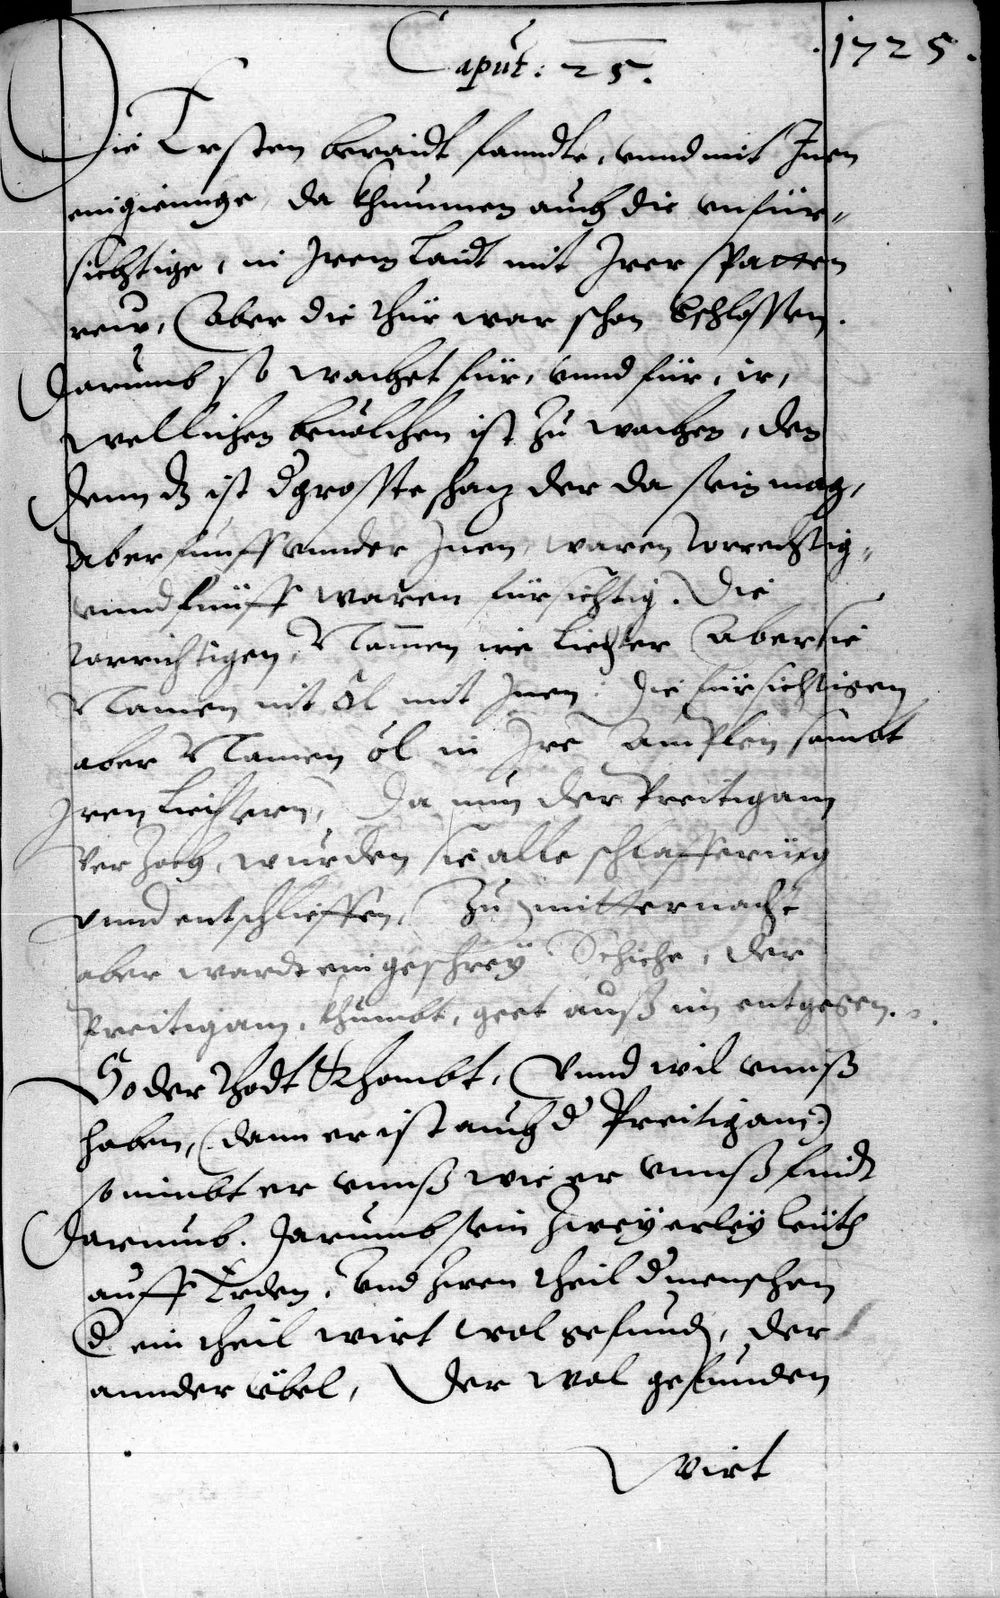 Caput: 25. 1725.
Die Ersten beraidt fanndte, vnnd mit Inen
einigiennge, da khummen auch die vnfür-
sichtige, in Irem Laidt mit Irer spatten
reur, Aber die thür war schon bschlossen.
Darumb so wachet für, vnnd für, ir,
wellichen beuolchen ist zu wachen, den
denn dz ist d grosste schaz der da sein mag,
Aber fünff vnnder Inen, waren torrechtig,
vnnd fünff waren fürsichtig. Die
torrichtigen, Namen ire Liechter Aber sie
Namen nit öl mit Inen: Die fürsichtigen
aber Namen öl in Ire Ampflen sambt
Iren Liechtern, Da nun der Preitigam
verzoch, wurden sie alle schlafferüeg
vnnd entschlieffen, Zu mitternacht
aber wardt ein geschrey Sehche, der
Preitigam, khumbt, geet auß im entgegen.
So der Thodt khombt, Vnnd wil vnnß
haben, (dann er ist auch d Preitigam)
so nimbt er vnnß wie er vnnß findt
Darumb. Darumb sein zweyerley leüth
auff Erden, Vnd zwen theil d menschen
d ein theil wirt wol gefunden, der
annder übel, Der wol gefunden
wirt